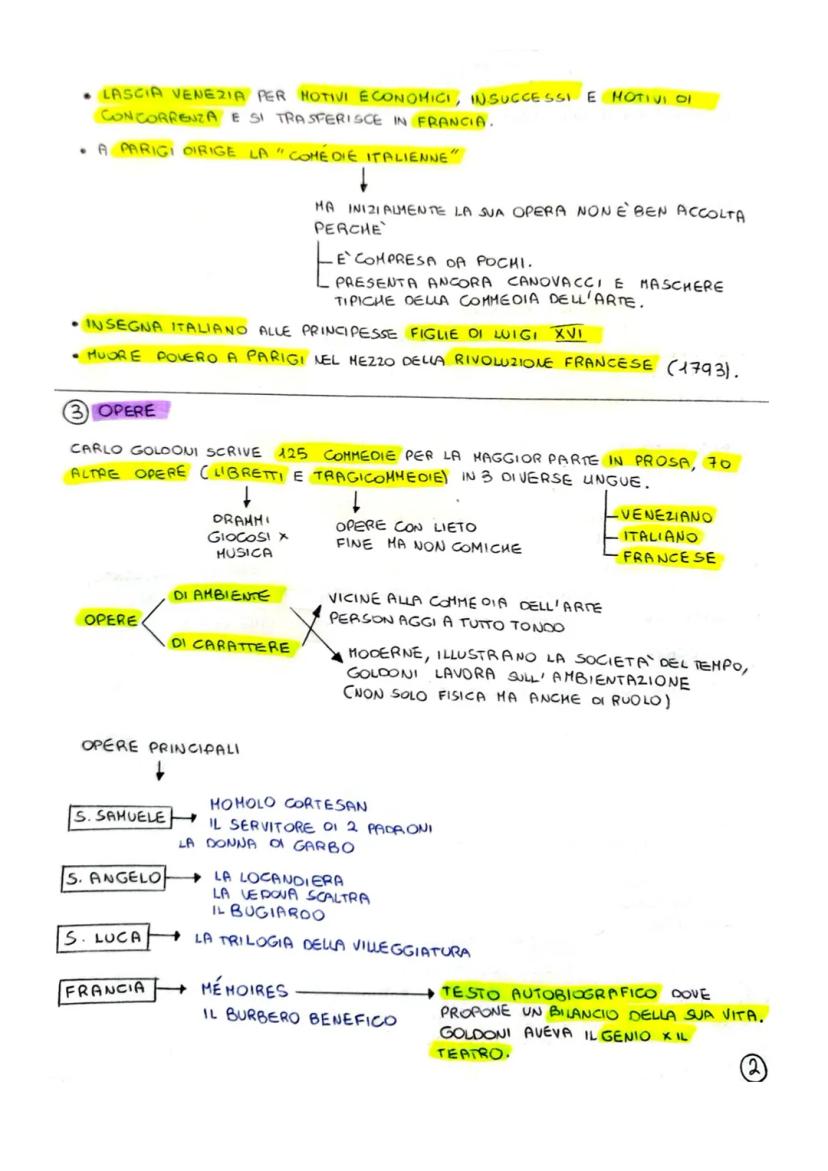 • LASCIA VENEZIA PER MOTIVI ECONOMICI, INSUCCESSI E MOTIVI DI
CONCORRENZA E SI TRASFERISCE IN FRANCIA.
• A PARIGI DIRIGE LA "COMÉDIE ITALIENNE"
MA INIZIALMENTE LA SUA OPERA NON È BEN ACCOLTA
PERCHÈ
È COMPRESA DA POCHI.
PRESENTA ANCORA CANOVACCI E MASCHERE
TIPICHE DELLA COMMEDIA DELL'ARTE.
• INSEGNA ITALIANO ALLE PRINCIPESSE FIGLIE DI LUIGI XVI
• MUORE POVERO A PARIGI NEL MEZZO DELLA RIVOLUZIONE FRANCESE (1793).
3 OPERE
CARLO GOLDONI SCRIVE 125 COMMEDIE PER LA MAGGIOR PARTE IN PROSA, 70
ALTRE OPERE (LIBRETTI E TRAGICOMMEDIE) IN 3 DIVERSE LINGUE.
DRAMMI
GIOCOSI X
MUSICA
OPERE CON LIETO
FINE MA NON COMICHE
VENEZIANO
ITALIANO
FRANCESE
OPERE
DI AMBIENTE
DI CARATTERE
VICINE ALLA COMMEDIA DELL'ARTE
PERSONAGGI A TUTTO TONDO
MODERNE, ILLUSTRANO LA SOCIETÀ DEL TEMPO,
GOLDONI LAVORA SULL'AMBIENTAZIONE
(NON SOLO FISICA MA ANCHE DI RUOLO)
OPERE PRINCIPALI
S. SAMUELE → MOMOLO CORTESAN
IL SERVITORE DI 2 PADRONI
LA DONNA DI GARBO
S. ANGELO → LA LOCANDIERA
LA VEDOVA SCALTRA
IL BUGIARDO
S. LUCA → LA TRILOGIA DELLA VILLEGGIATURA
FRANCIA → MÉMOIRES → TESTO AUTOBIOGRAFICO DOVE
IL BURBERO BENEFICO
PROPONE UN BILANCIO DELLA SUA VITA.
GOLDONI AVEVA IL GENIO X IL
TEATRO.
2